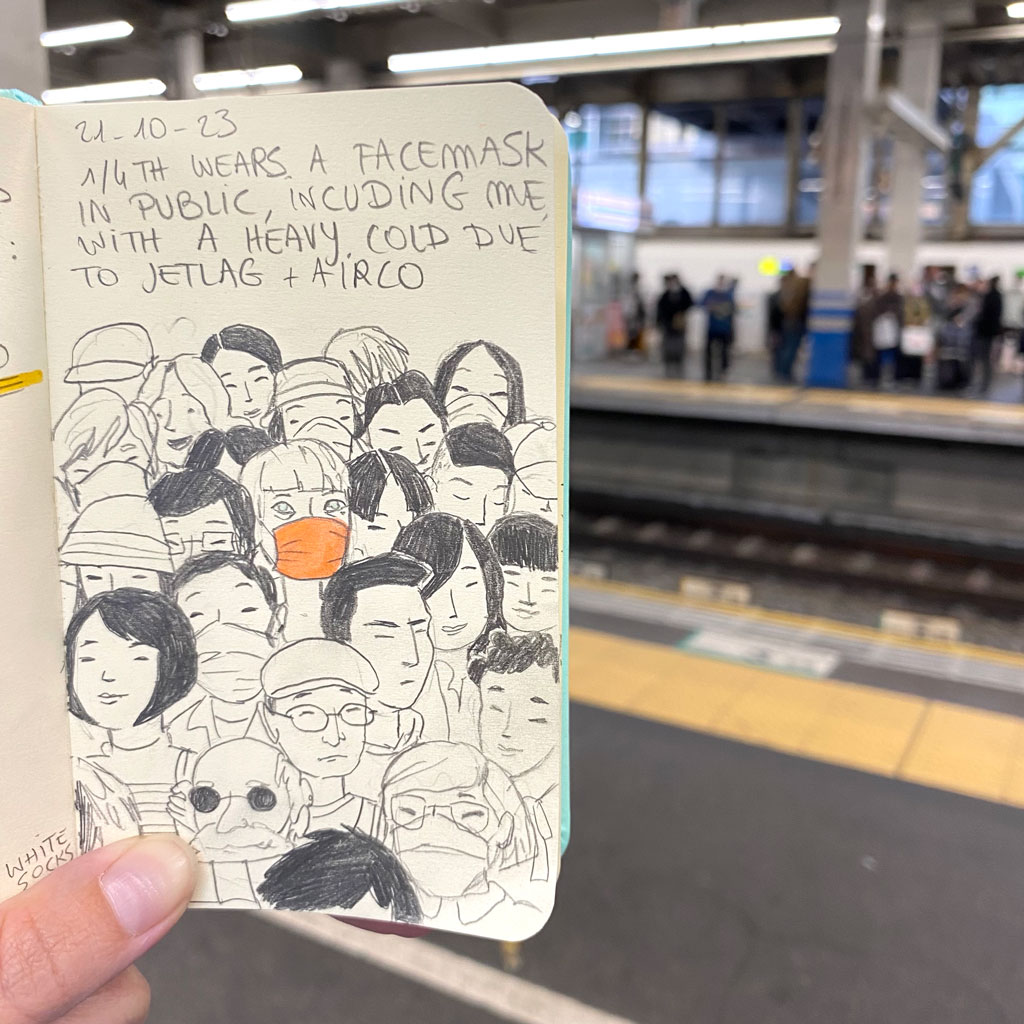 21-10-23
1/4TH WEARS A FACEMASK
IN PUBLIC, INCUDING ME,
WITH A HEAVY COLD DUE
TO JETLAG + AIRCO
WHITE
SOCKS